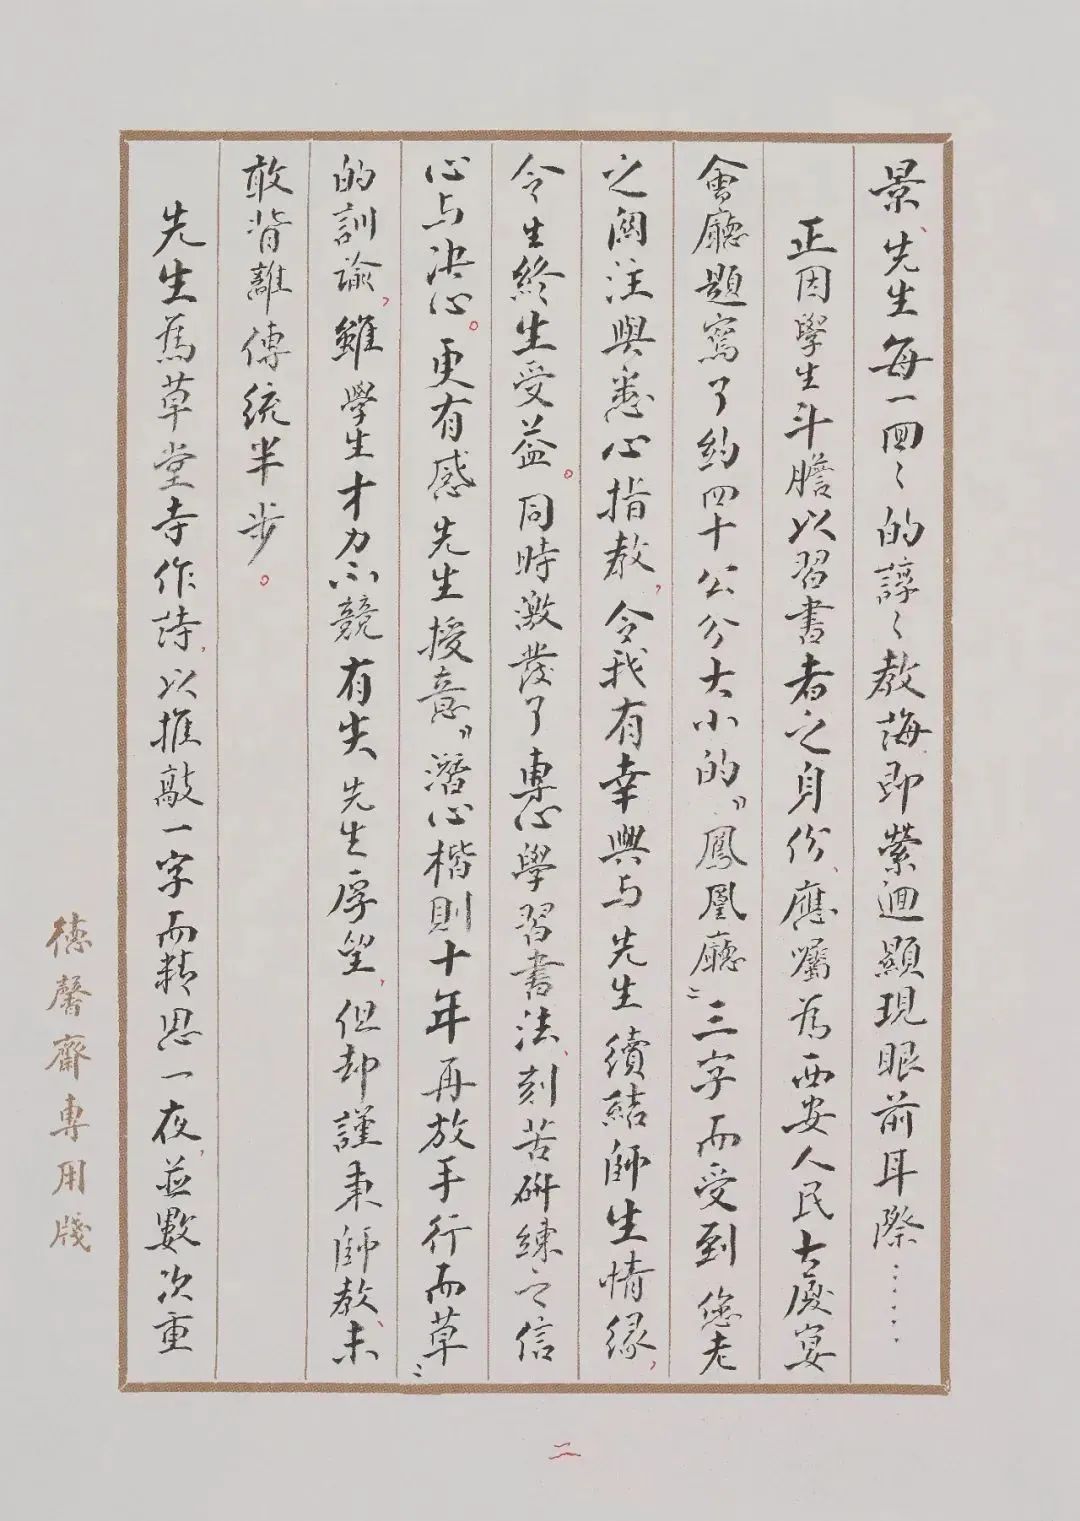 景、先生每一回々的諄々教誨即縈迴顯現眼前耳際……
正因學生斗膽以習書者之身份、應囑为西安人民大廈宴
會廳題寫了約四十公分大小的"鳳凰廳"三字而受到 您老
之関注與悉心指教，令我有幸興与先生續結師生情缘，
令生終生受益。同時激發了專心學習書法、刻苦研練之信
心与決心。更有感 先生授意"潛心楷則十年再放手行而草"
的訓諭，雖學生才力不競有失 先生厚望，但却謹秉師教、未
敢背離傳统半步。
先生為草堂寺作詩，以推敲一字而精思一夜，並數次重
德馨齋專用牋
二